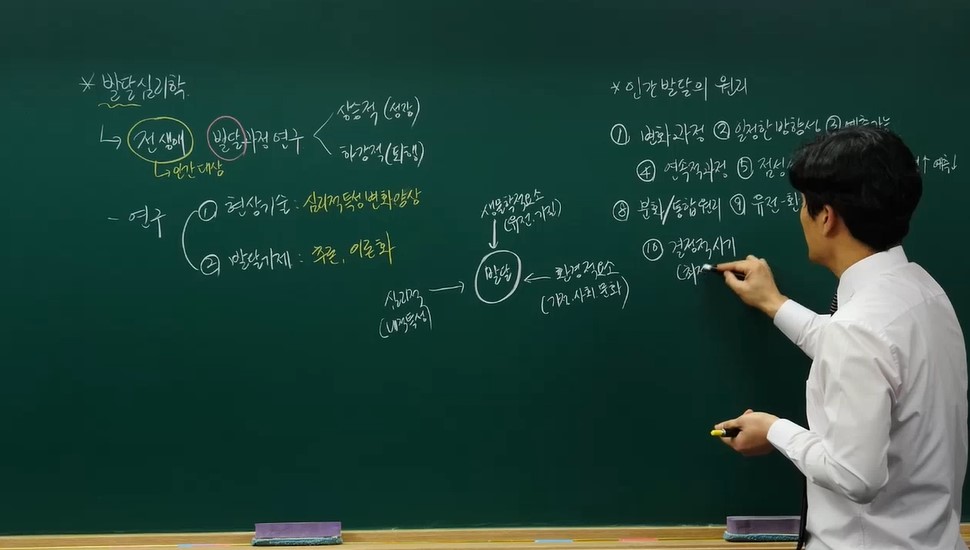 * 발달심리학
→ 전생애 발달과정연구
상승적 (성장)
하강적 (퇴행)
→ 인간대상
- 연구
① 현상기술 : 심리적특성변화양상
② 발달기제 : 추론, 이론화
생물학적요소
(유전.기질)
발달
심리적
(내적특성)
환경적요소
(가정.사회.문화)
* 인간발달의 원리
① 변화과정 ② 일정한 방향성 ③ 예측가능
④ 연속적과정 ⑤ 점성 ↑ 예측↓
⑧ 분화/통합원리 ⑨ 유전-환
⑩ 결정적시기